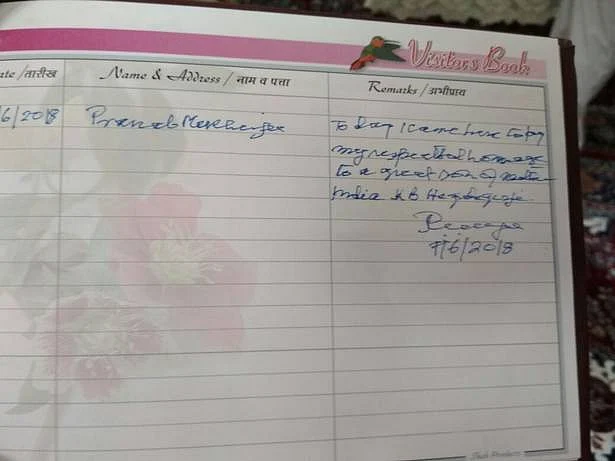 Visitors Book
ate / तारीख Name & Address / नाम व पत्ता Remarks / अभीप्राय
6/2018 Pranab Mukherjee To day I came here to pay
my respect & homage
to a great son of mother
India K B Hegdewarji.
7/6/2018